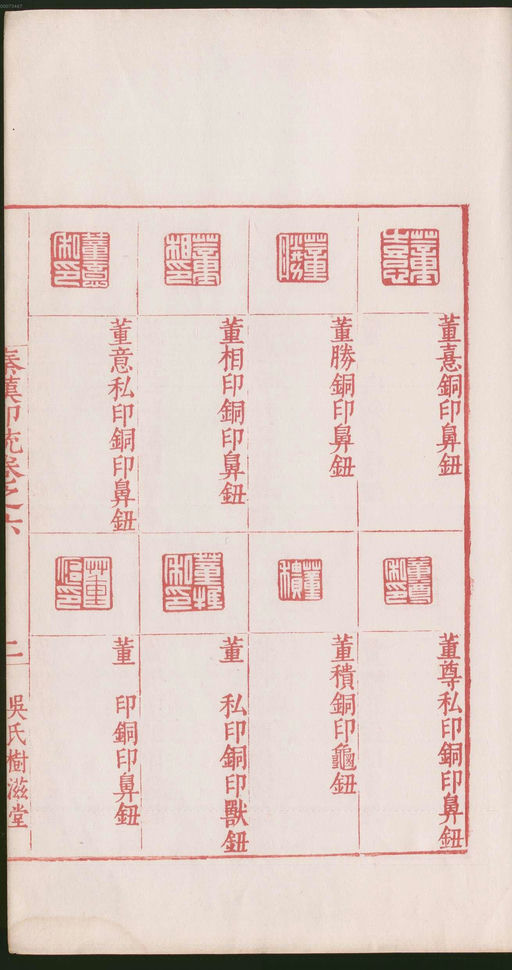 00073467
董憙銅印鼻鈕
董勝銅印鼻鈕
董相印銅印鼻鈕
董意私印銅印鼻鈕
董尊私印銅印鼻鈕
董積銅印龜鈕
董　私印銅印獸鈕
董　印銅印鼻鈕
秦漢印統卷之六
二
吳氏樹滋堂